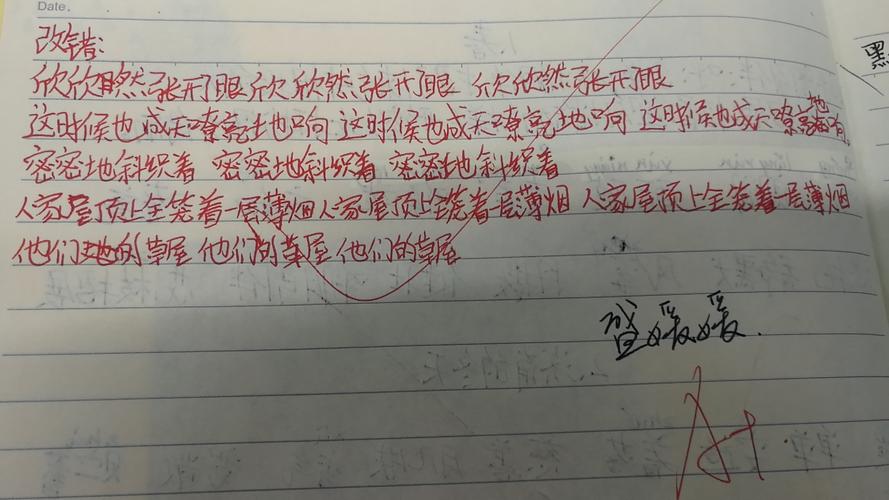 Date.
改错:
欣欣然张开了眼 欣欣然张开了眼 欣欣然张开了眼
这时候也成天嘹亮地响 这时候也成天嘹亮地响 这时候也成天嘹亮地响。
密密地斜织着 密密地斜织着 密密地斜织着
人家屋顶上全笼着一层薄烟 人家屋顶上全笼着一层薄烟 人家屋顶上全笼着一层薄烟
他们的草屋 他们的草屋 他们的草屋
媛媛.
A+
黑